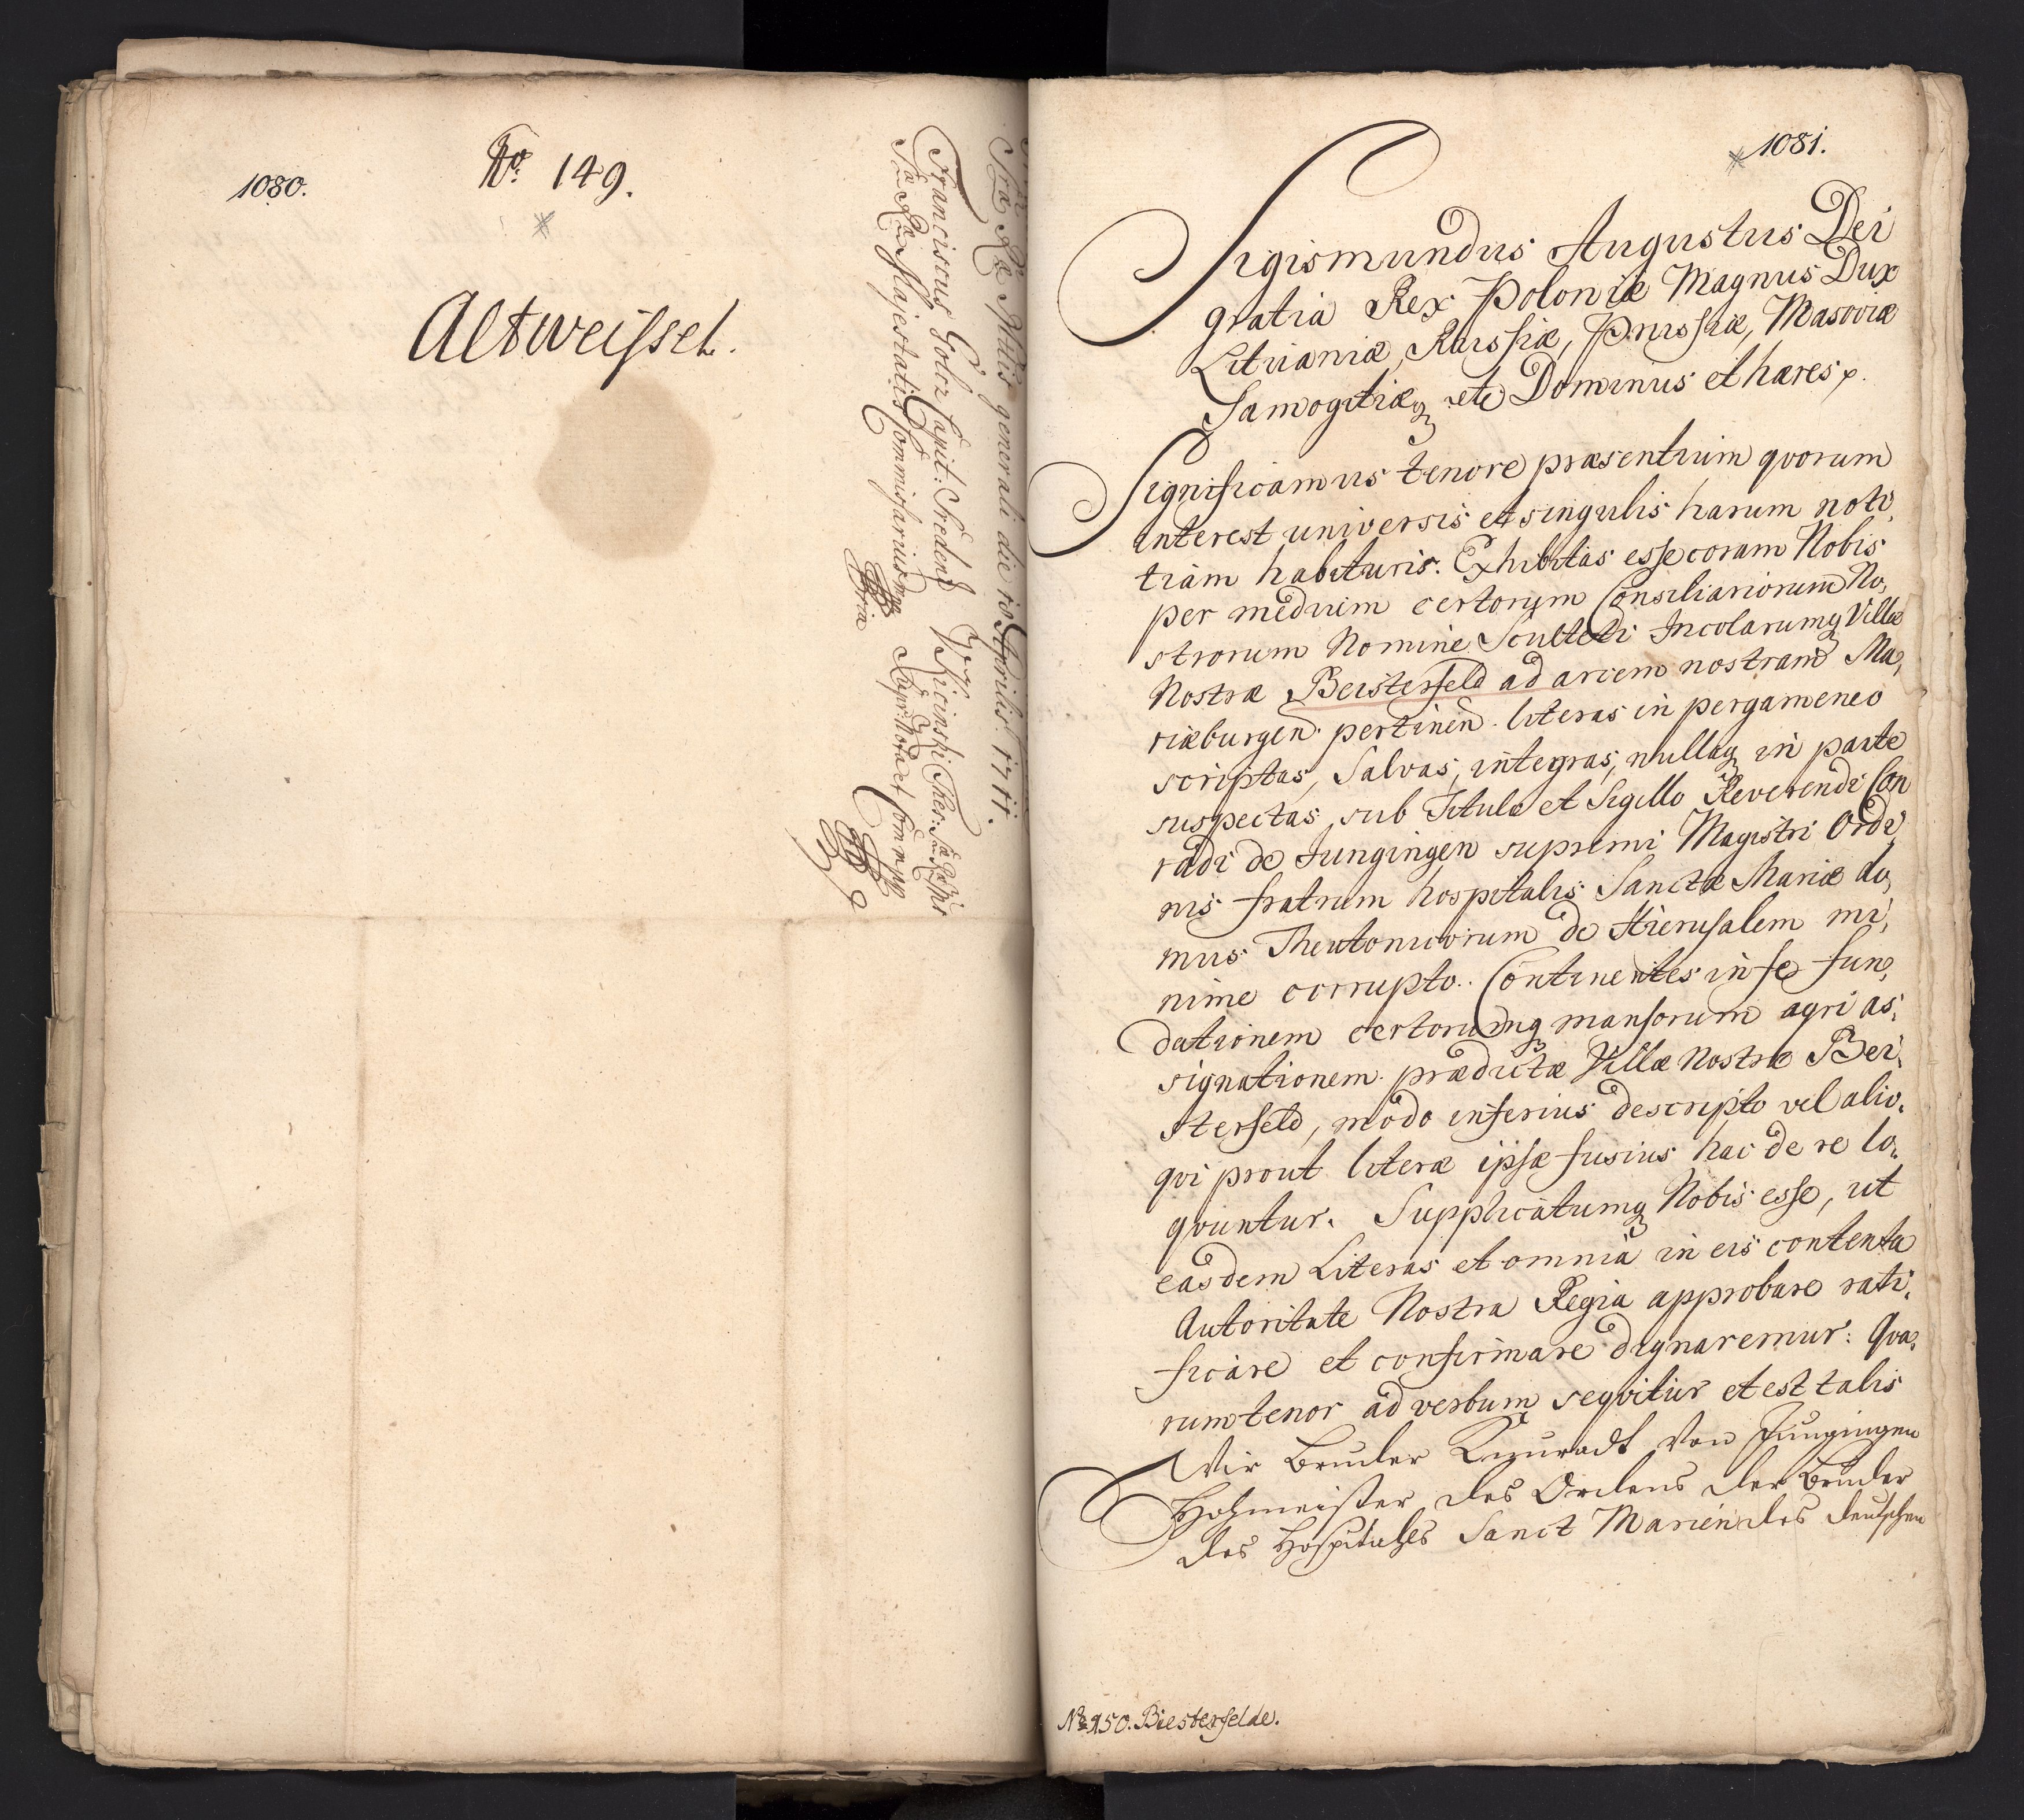 1080.
No. 149.
Altweissel.
Sræ Ræ Mttis generali die Aprilis 1711.
Franciscus Goltz Capit: Sredens
Sæ Ræ Majestatis Commissarius mpp
1081.
Sigismundus Augustus Dei
gratia Rex Poloniæ Magnus Dux
Lituaniæ, Russiæ, Prussiæ, Masoviæ
Samogitiæq etc Dominus et hæres p.
Significamus tenore præsentium qvorum
interest universis et singulis harum noti,
tiam habituris. Exhibitas esse coram Nobis
per medium certorum Consiliariorum No,
strorum Nomine Sculteti Incolarumq Villæ
Nostræ Beisterfeld ad arcem nostram Ma,
riæburgen. pertinen. literas in pergameneo
scriptas, Salvas, integras, nullaq in parte
suspectas, sub Titulo et Sigillo Reverendi Con
radi de Jungingen supremi Magistri Ordi,
nis fratrum hospitalis Sanctæ Mariæ do,
mus Theutonicorum de Hierusalem mi,
nime corrupto. Continentes in se fun,
dationem certorumq mansorum agri as,
signationem prædictæ Villæ Nostræ Bei,
sterfeld, modo inferius descripto vel alio,
qvi prout literæ ipsæ fusius hac de re lo,
qvuntur. Supplicatumq Nobis esse, ut
easdem Literas et omnia in eis contenta
Autoritate Nostra Regia approbare rati,
ficare et confirmare dignaremur: Qva,
rum tenor ad verbum seqvitur et est talis
Wir Bruder Cunradt von Jungingen
Hohmeister des Ordens der Brüder
des Hospitahls Sanct Marien des deutschen
No 150. Biesterfelde.